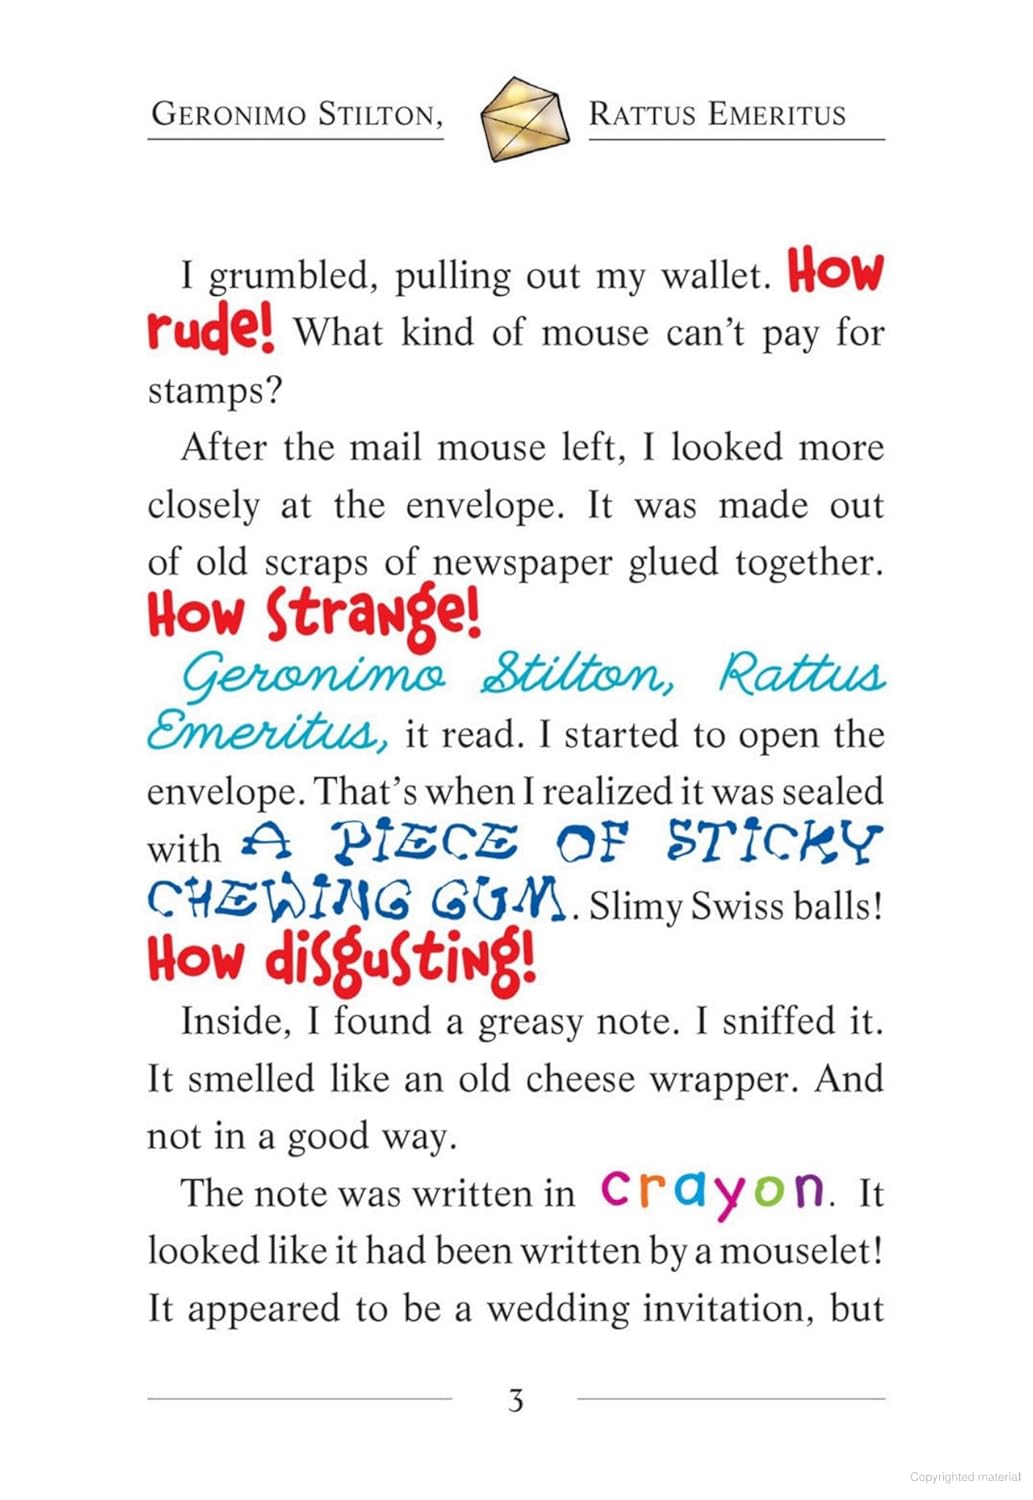 GERONIMO STILTON, RATTUS EMERITUS
I grumbled, pulling out my wallet. How
rude! What kind of mouse can’t pay for
stamps?
After the mail mouse left, I looked more
closely at the envelope. It was made out
of old scraps of newspaper glued together.
How strange!
Geronimo Stilton, Rattus
Emeritus, it read. I started to open the
envelope. That’s when I realized it was sealed
with A PIECE OF STICKY
CHEWING GUM. Slimy Swiss balls!
How disgusting!
Inside, I found a greasy note. I sniffed it.
It smelled like an old cheese wrapper. And
not in a good way.
The note was written in crayon. It
looked like it had been written by a mouselet!
It appeared to be a wedding invitation, but
3
Copyrighted material